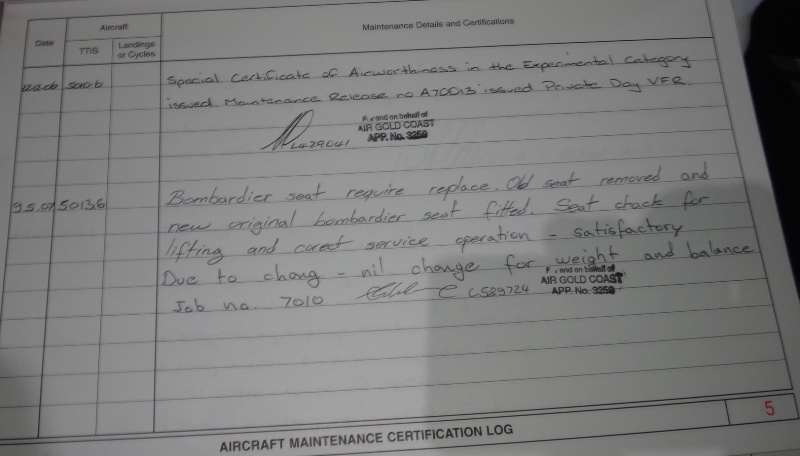 Date
Aircraft
TTIS
Landings or Cycles
Maintenance Details and Certifications
5010.6
Special Certificate of Airworthiness in the Experimental Category
issued. Maintenance Release no A70013 issued Private Day VFR.
L429041
For and on behalf of
AIR GOLD COAST
APP. No. 3259
9.5.07 5013.6
Bombardier seat require replace. Old seat removed and
new original bombardier seat fitted. Seat check for
lifting and corect service operation - satisfactory
Due to chang - nil change for weight and balance
Job no. 7010
C589724
For and on behalf of
AIR GOLD COAST
APP. No. 3259
AIRCRAFT MAINTENANCE CERTIFICATION LOG
5